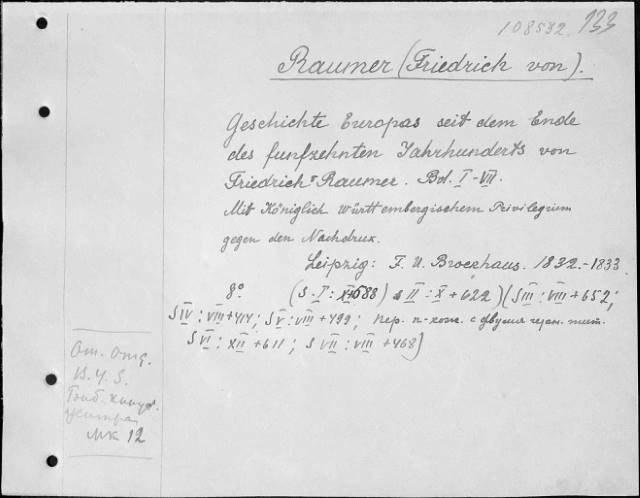 108532. 133
Raumer (Friedrich von).
Geschichte Europas seit dem Ende
des funfzehnten Jahrhunderts von
Friedrich Raumer. Bd. I-VII.
Mit Königlich Württembergischem Privilegium
gegen den Nachdrux.
Leipzig: F. U. Brockhaus. 1832.-1833
8º (S. I: +588) II: X+622) (S III: VIII+652;
S IV: VIII+414; S V: VIII+499; пер. п-кож. с двумя
S VI: XII+611; S VII: VIII+468)
От. Отд.
В. 4. 8.
МК 12